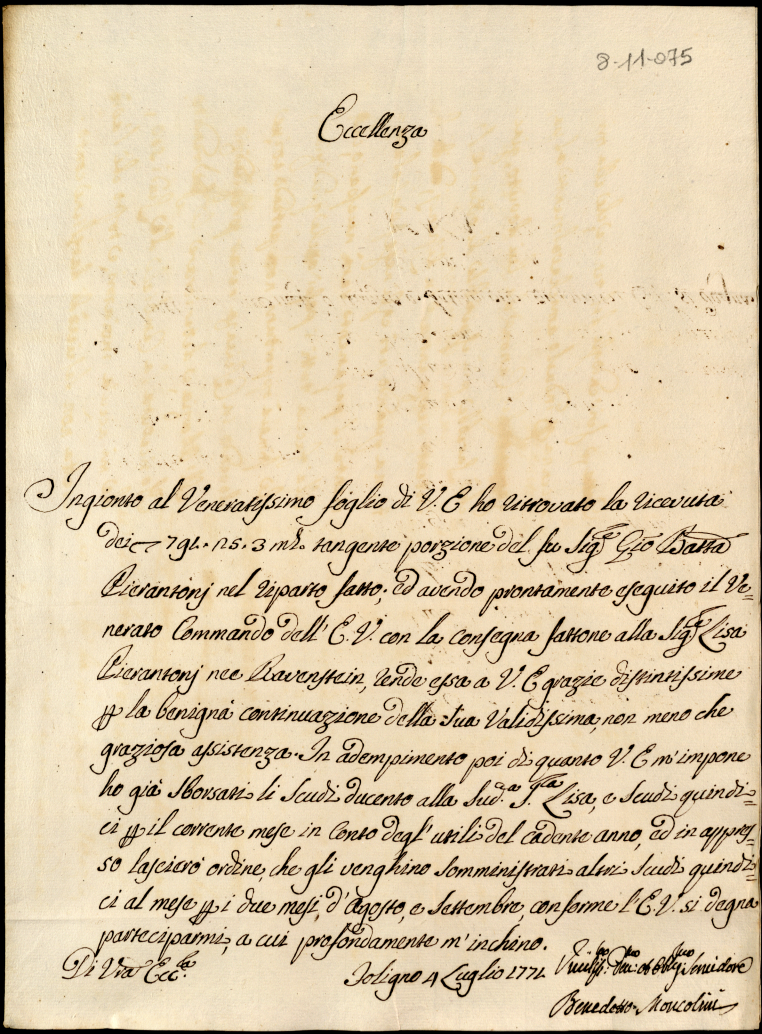 8-11-075
Eccellenza
Ingionto al Veneratissimo foglio di V. E ho ritrovato la ricevuta
dei 791. 15. 3 mta. tangente porzione del fu Sigre Gio Batta
Pierantonj nel riparto fatto; ed avendo prontamente eseguito il Ve=
nerato Commando dell' E. V. con la consegna fattone alla Sigra Lisa
Pierantonj nee Ravenstein, rende essa a V. E grazie distintissime
p la benigna continuazione della Sua Validissima, non meno che
graziosa assistenza. In adempimento poi di quanto V. E m'impone
ho già sborsati li Scudi ducento alla Sud.a S.ra Lisa, e Scudi quindi=
ci p il corrente mese in conto degl' utili del cadente anno, ed in appres=
so lascierò ordine, che gli venghino somministrati altri Scudi quindi=
ci al mese p i due mesi, d'Agosto, e Settembre, conforme l'E. V. si degna
parteciparmi, a cui profondamente m'inchino.
Di Vra Ecc.la Foligno 4 Luglio 1771 Servidore
Benedetto Moncolini